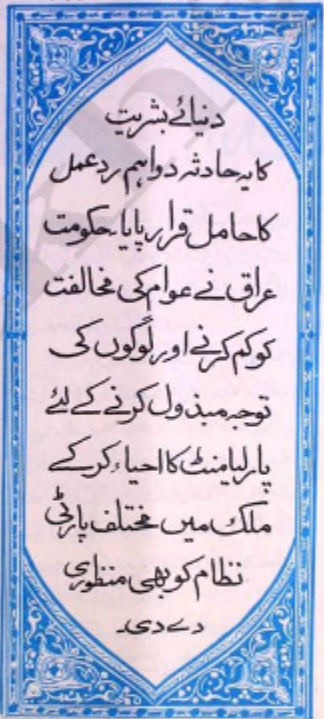 دنیائے بشریت
کا یہ حادثہ دو اہم ردعمل
کا حامل قرار پایا۔ حکومت
عراق نے عوام کی مخالفت
کو کم کرنے اور لوگوں کی
توجہ مبذول کرنے کے لئے
پارلیامنٹ کا احیاء کرکے
ملک میں مختلف پارٹی
نظام کو بھی منظوری
دے دی۔